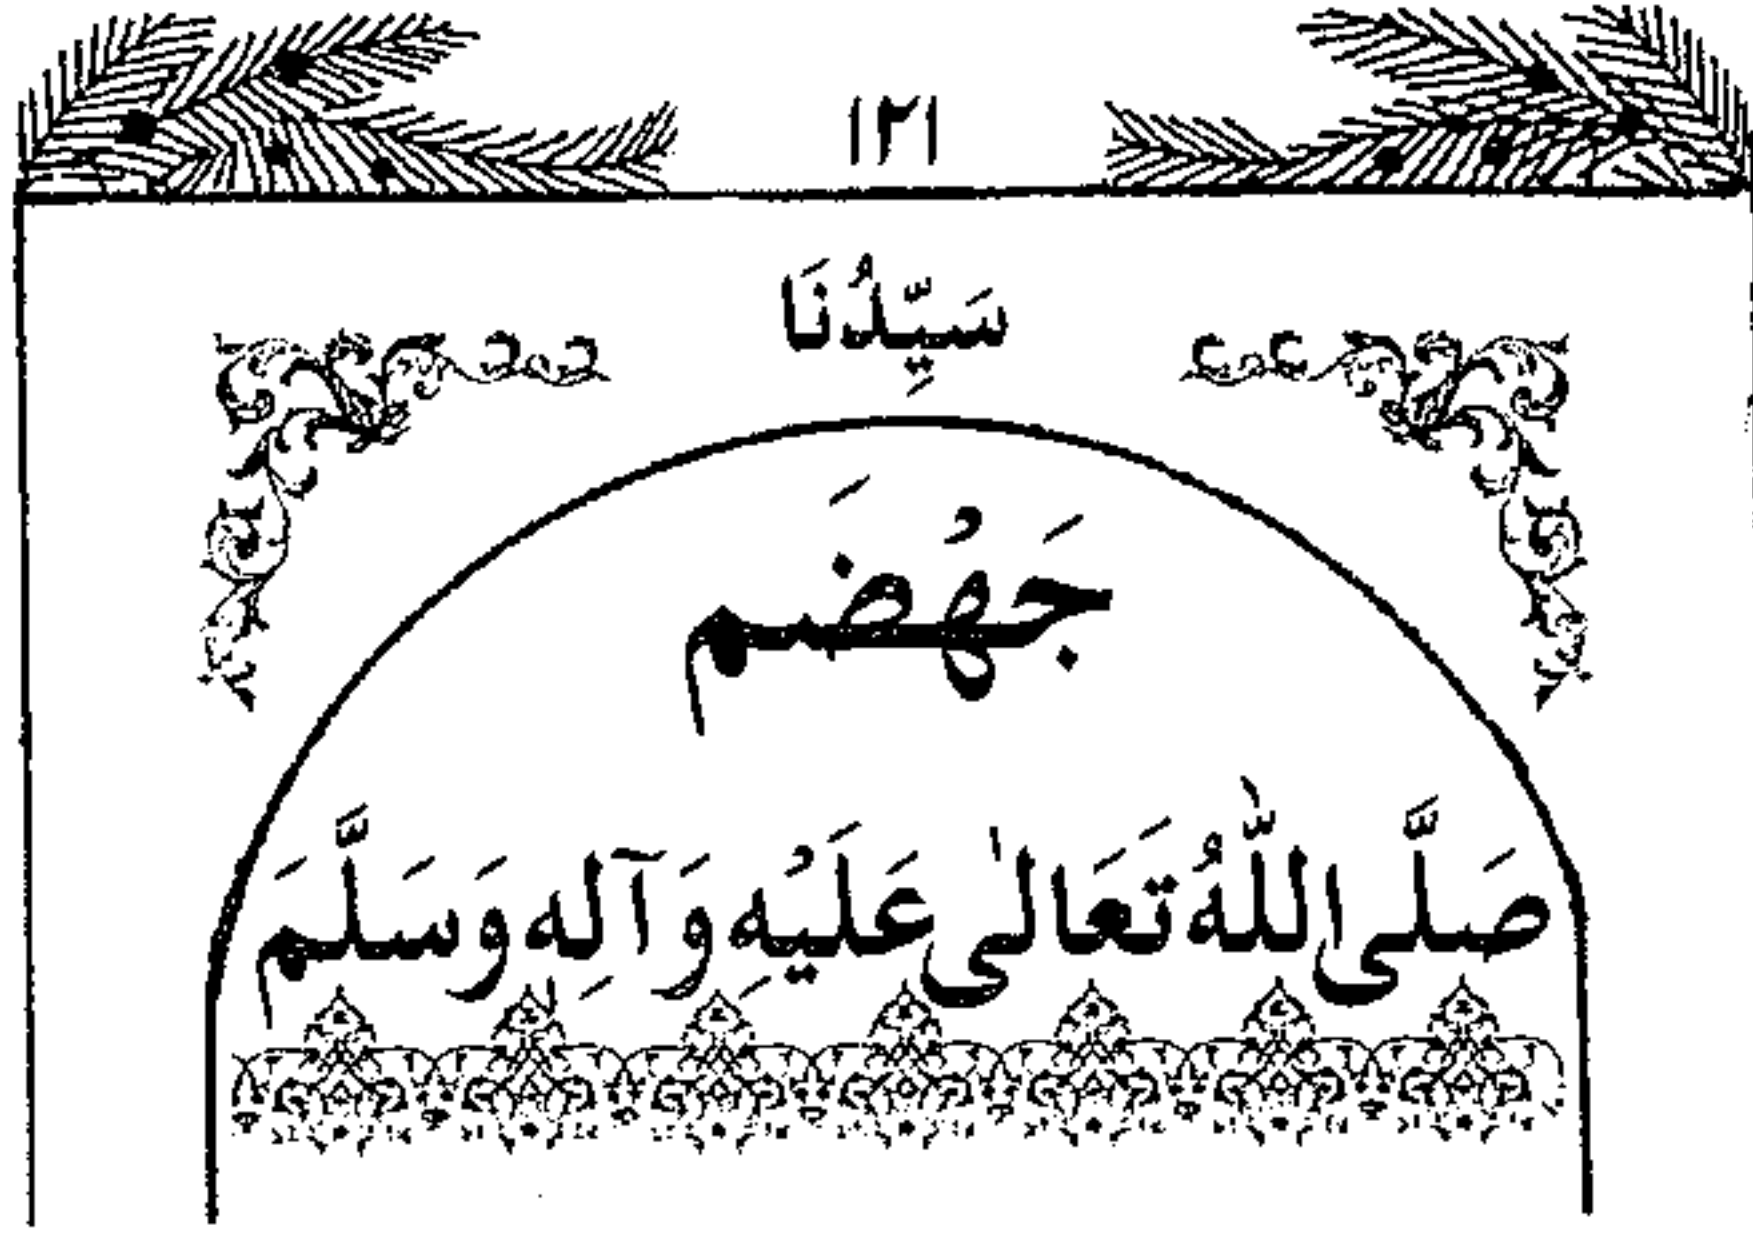 ١٢١
سَيِّدُنَا
جَهْضَم
صَلَّى اللّٰهُ تَعَالٰى عَلَيْهِ وَآلِهٖ وَسَلَّمَ